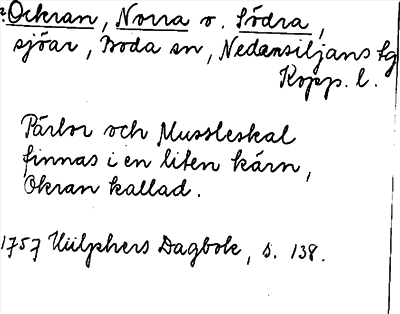 Ockran, Norra o. Södra,
sjöar, Boda sn, Nedansiljans fg
Kopp. l.
Pärlor och Mussleskal
finnas i en liten kärn,
Okran kallad.
1757 Hülphers Dagbok, s. 138.